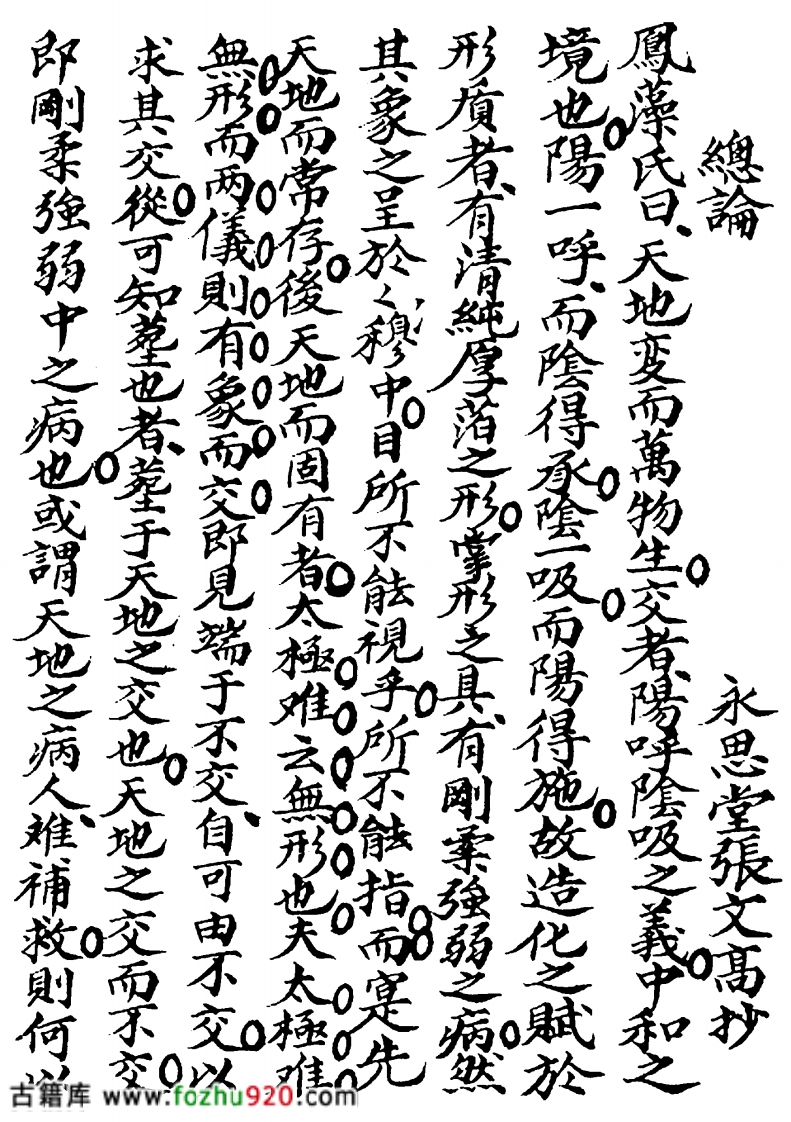 總論
永思堂張文高抄
鳳藻氏曰、天地変而萬物生交者、陽呼陰吸之義中和之
境也陽一呼、而陰得承陰一吸而陽得施故造化之賦於
形質者、有清純厚落之形掌形之具、有剛柔強弱之病然
其象之呈於〻穆中目所不能視乎所不能指而寔先
天地而常存後天地而固有者太極难云無形也夫太極难
無形而两儀則有象而交即見端于不交、自可由不交以
求其交從可知塟也者、塟于天地之交也天地之交而不交
即剛柔強弱中之病也或謂天地之病人、难補救則何以
古籍库 www.fozhu920.com